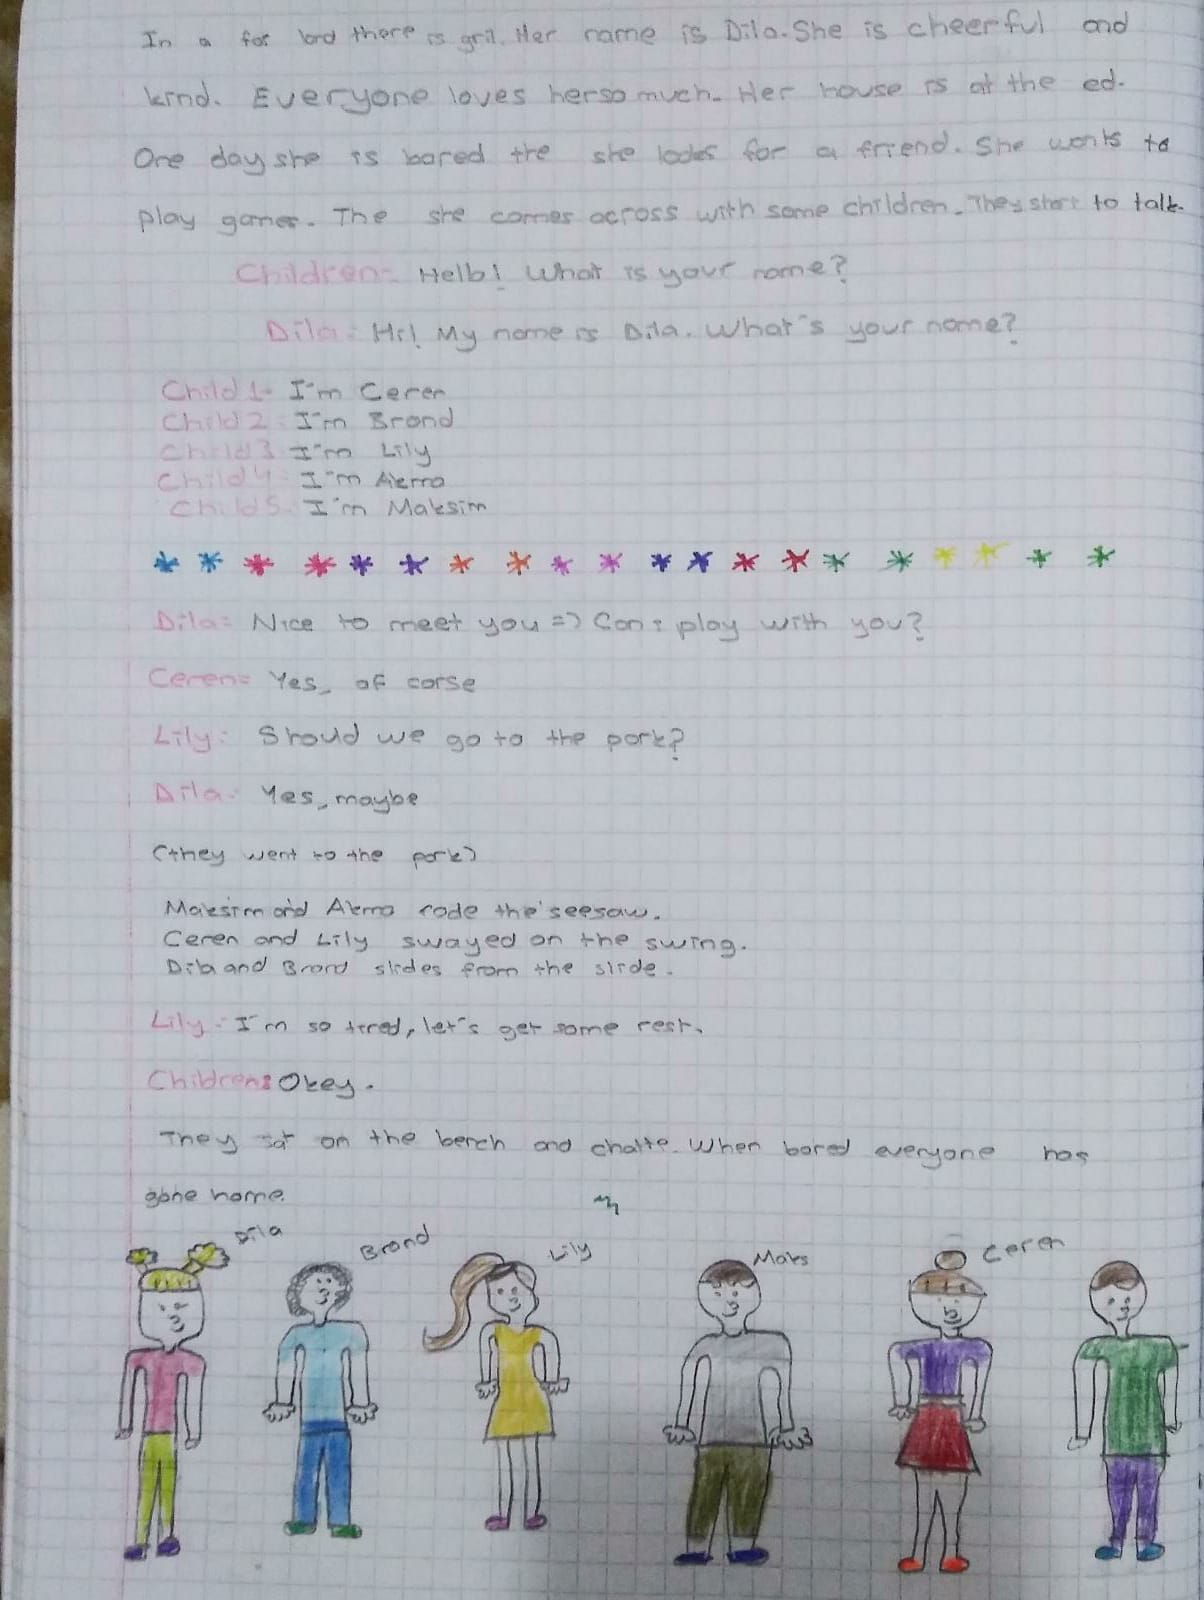 In a far lard there is gril. Her name is Dila. She is cheerful and
kind. Everyone loves her so much. Her house is at the ed.
One day she is bored the she looks for a friend. She wants to
play games. The she comes across with some children. They start to talk.
Children= Hello! What is your name?
Dila: Hi! My name is Dila. What's your name?
Child 1- I'm Ceren
Child 2: I'm Brand
Child 3 I'm Lily
Child 4: I'm Akma
Child 5: I'm Maksim
Dila= Nice to meet you =) Can I play with you?
Ceren= Yes, of corse
Lily: Should we go to the park?
Dila: Yes, maybe
(they went to the park)
Maksim and Akma rode the seesaw.
Ceren and Lily swayed on the swing.
Dila and Brand slides from the slide.
Lily: I'm so tired, let's get some rest.
Children: Okey.
They sat on the bench and chatte. When bored everyone has
gone home.
Dila Brand Lily Maks Ceren